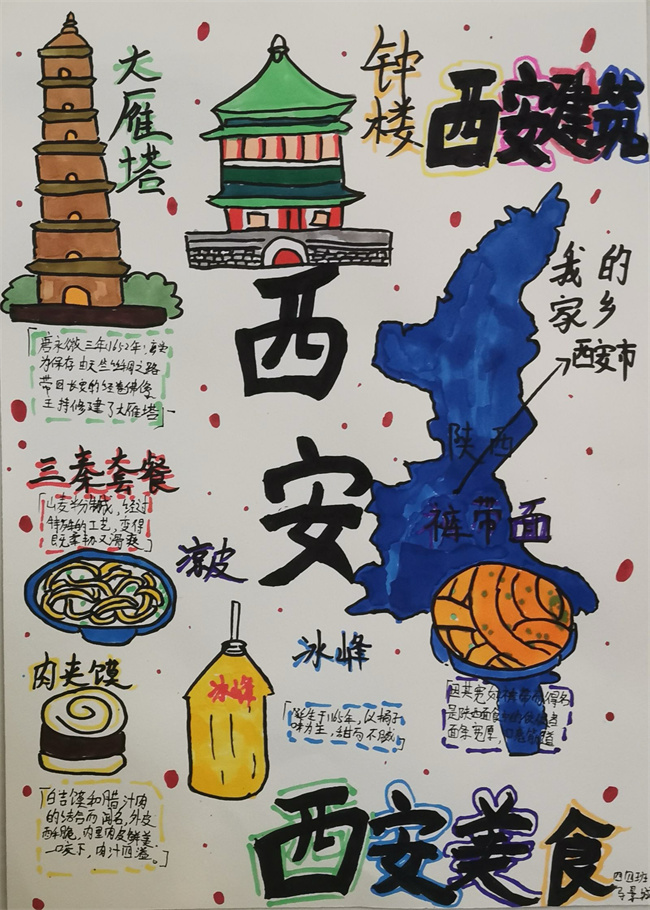 大雁塔
钟楼
西安建筑
我的
家乡
西安市
西安
陕西
唐永徽三年1652年,玄奘
为保存由天竺经丝绸之路
带回长安的经卷佛像
主持修建了大雁塔
三秦套餐
制成,经过
特殊的工艺,变得
既柔韧又滑爽
凉皮
裤带面
肉夹馍
冰峰
冰峰
味为主,甜而不腻
因其宽如裤带而得名
是陕西面食
面条宽厚,
白吉馍和腊汁肉
的结合而闻名,外皮
酥脆,内里肉质鲜美
一口咬下,肉汁四溢。
西安美食
四四班